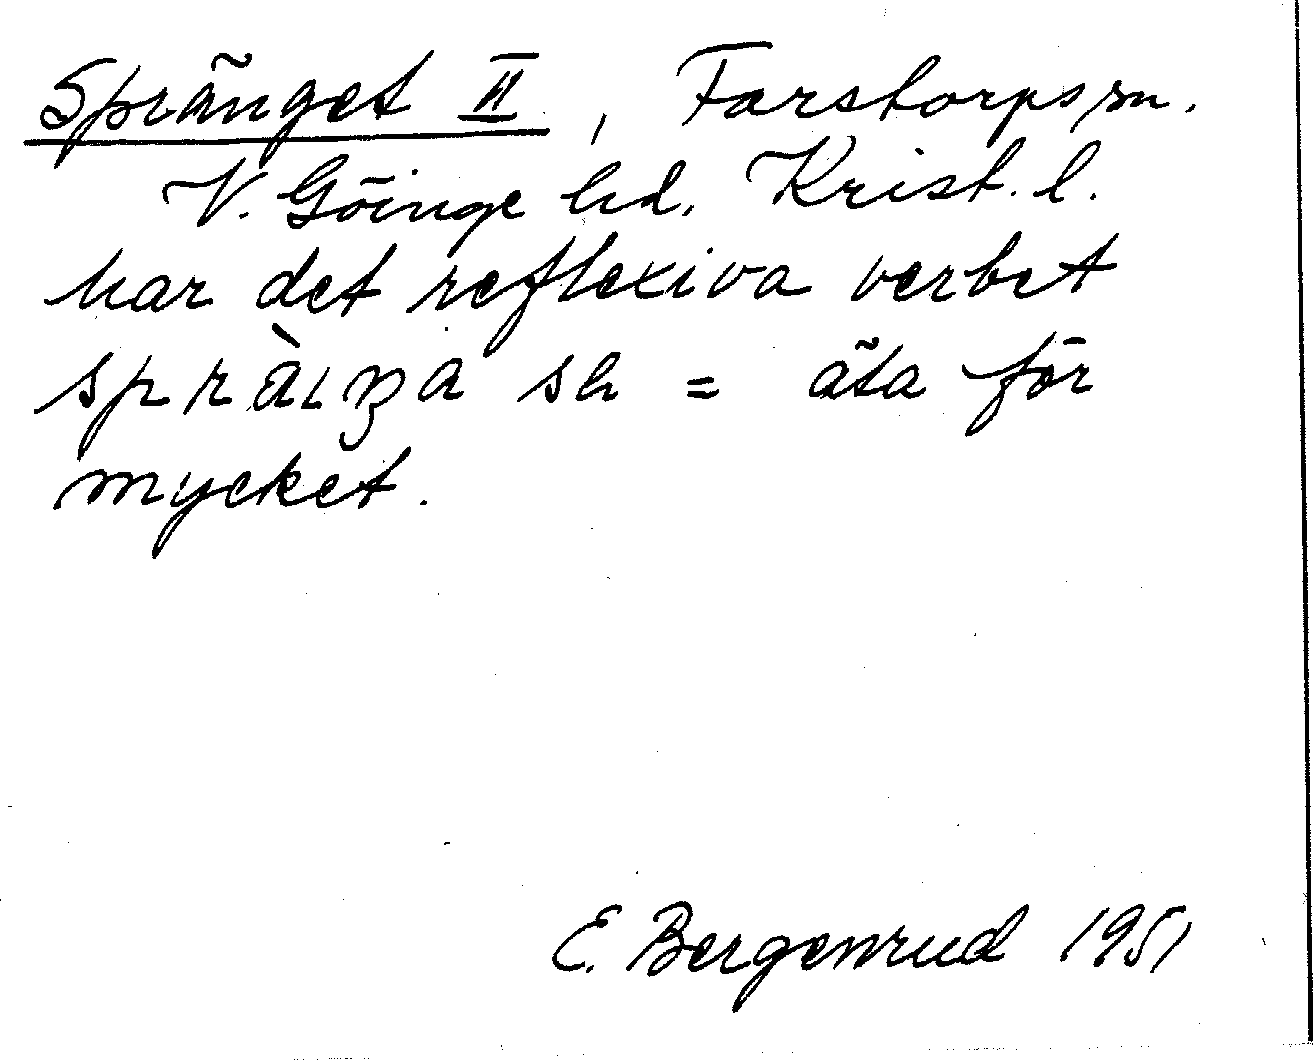 Spränget II, Farstorps sn.
V. Göinge hd. Krist. l.
har det reflexiva verbet
spràıŋa sh = äta för
mycket.
E. Bergenrud 1951